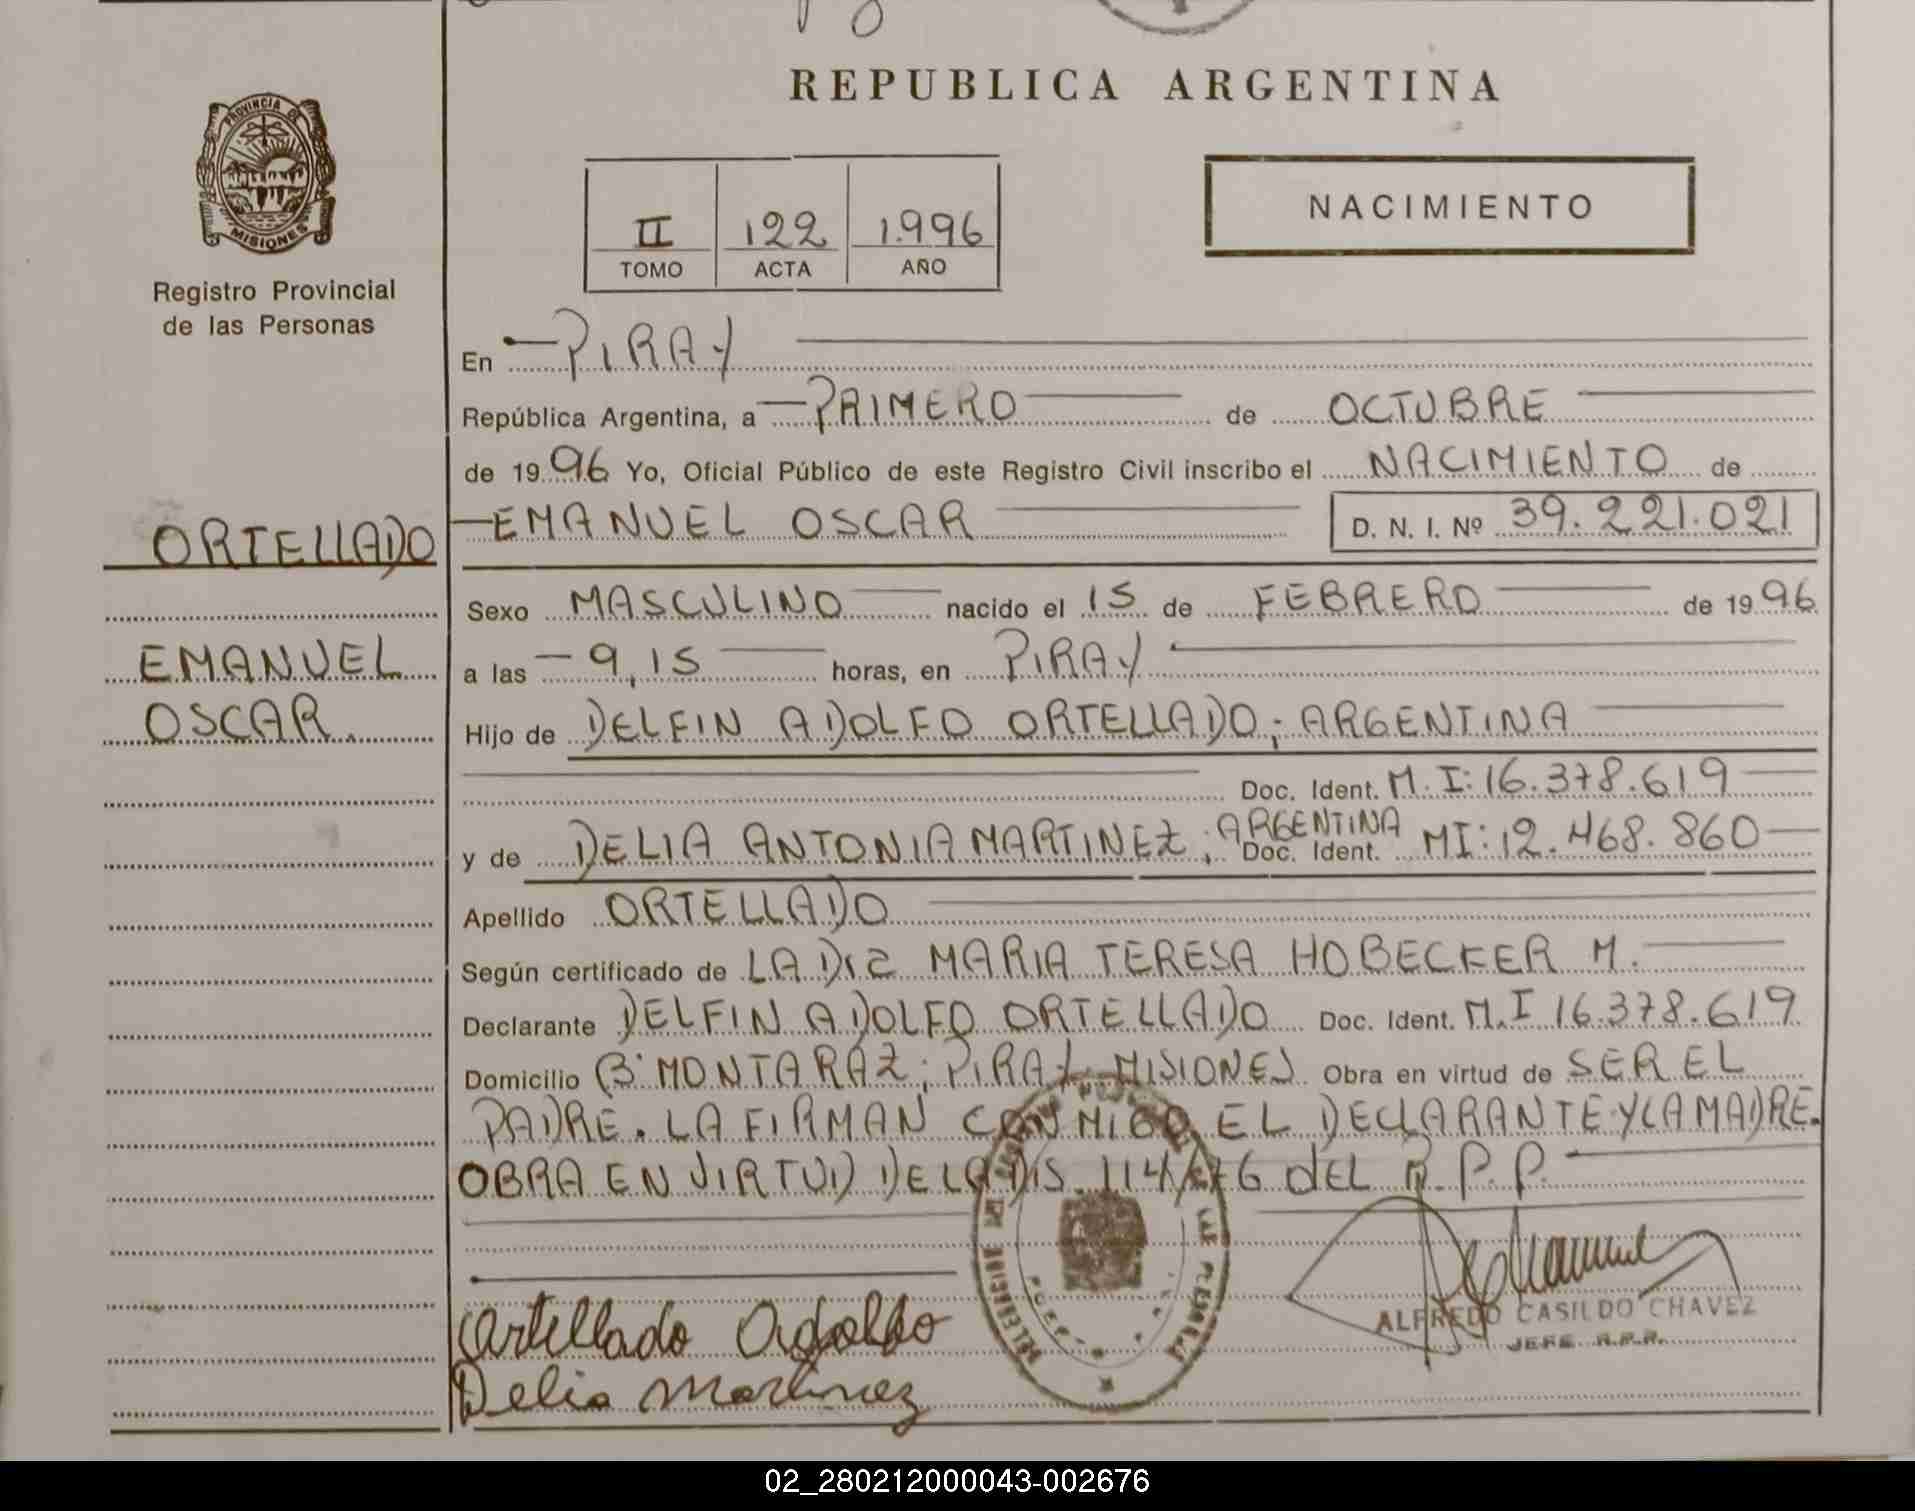 REPUBLICA ARGENTINA
PROVINCIA DE
MISIONES
Registro Provincial
de las Personas
II 122 1.996
TOMO ACTA AÑO
NACIMIENTO
En PIRAY
República Argentina, a PRIMERO de OCTUBRE
de 19 96 Yo, Oficial Público de este Registro Civil inscribo el NACIMIENTO de
ORTELLADO
EMANUEL
OSCAR.
EMANUEL OSCAR D. N. I. Nº 39.221.021
Sexo MASCULINO nacido el 15 de FEBRERO de 19 96
a las 9,15 horas, en PIRAY
Hijo de DELFIN ADOLFO ORTELLADO; ARGENTINA
Doc. Ident. M.I: 16.378.619
y de DELIA ANTONIA MARTINEZ; ARGENTINA Doc. Ident. MI: 12.468.860
Apellido ORTELLADO
Según certificado de LA DIS MARIA TERESA HOBECKER M.
Declarante DELFIN ADOLFO ORTELLADO Doc. Ident. M.I 16.378.619
Domicilio Bº MONTARAZ; PIRAY MISIONES Obra en virtud de SER EL
PADRE. LA FIRMAN CONMIGO EL DECLARANTE Y LA MADRE.
OBRA EN VIRTUD DE LA DIS. 114/ DEL R.P.P.
Ortellado Adolfo
Delia Martinez
ALFREDO CASILDO CHAVEZ
JEFE R.P.P.
02_280212000043-002676